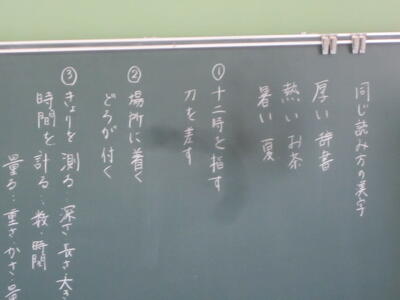 同じ読み方の漢字
厚い 辞書
熱い お茶
暑い 夏
① 十二時を指す
刀を差す
② 場所に着く
どろが付く
③ きょりを測る…深さ・長さ・大き
時間を計る…数・時間
量る…重さ・かさ・量